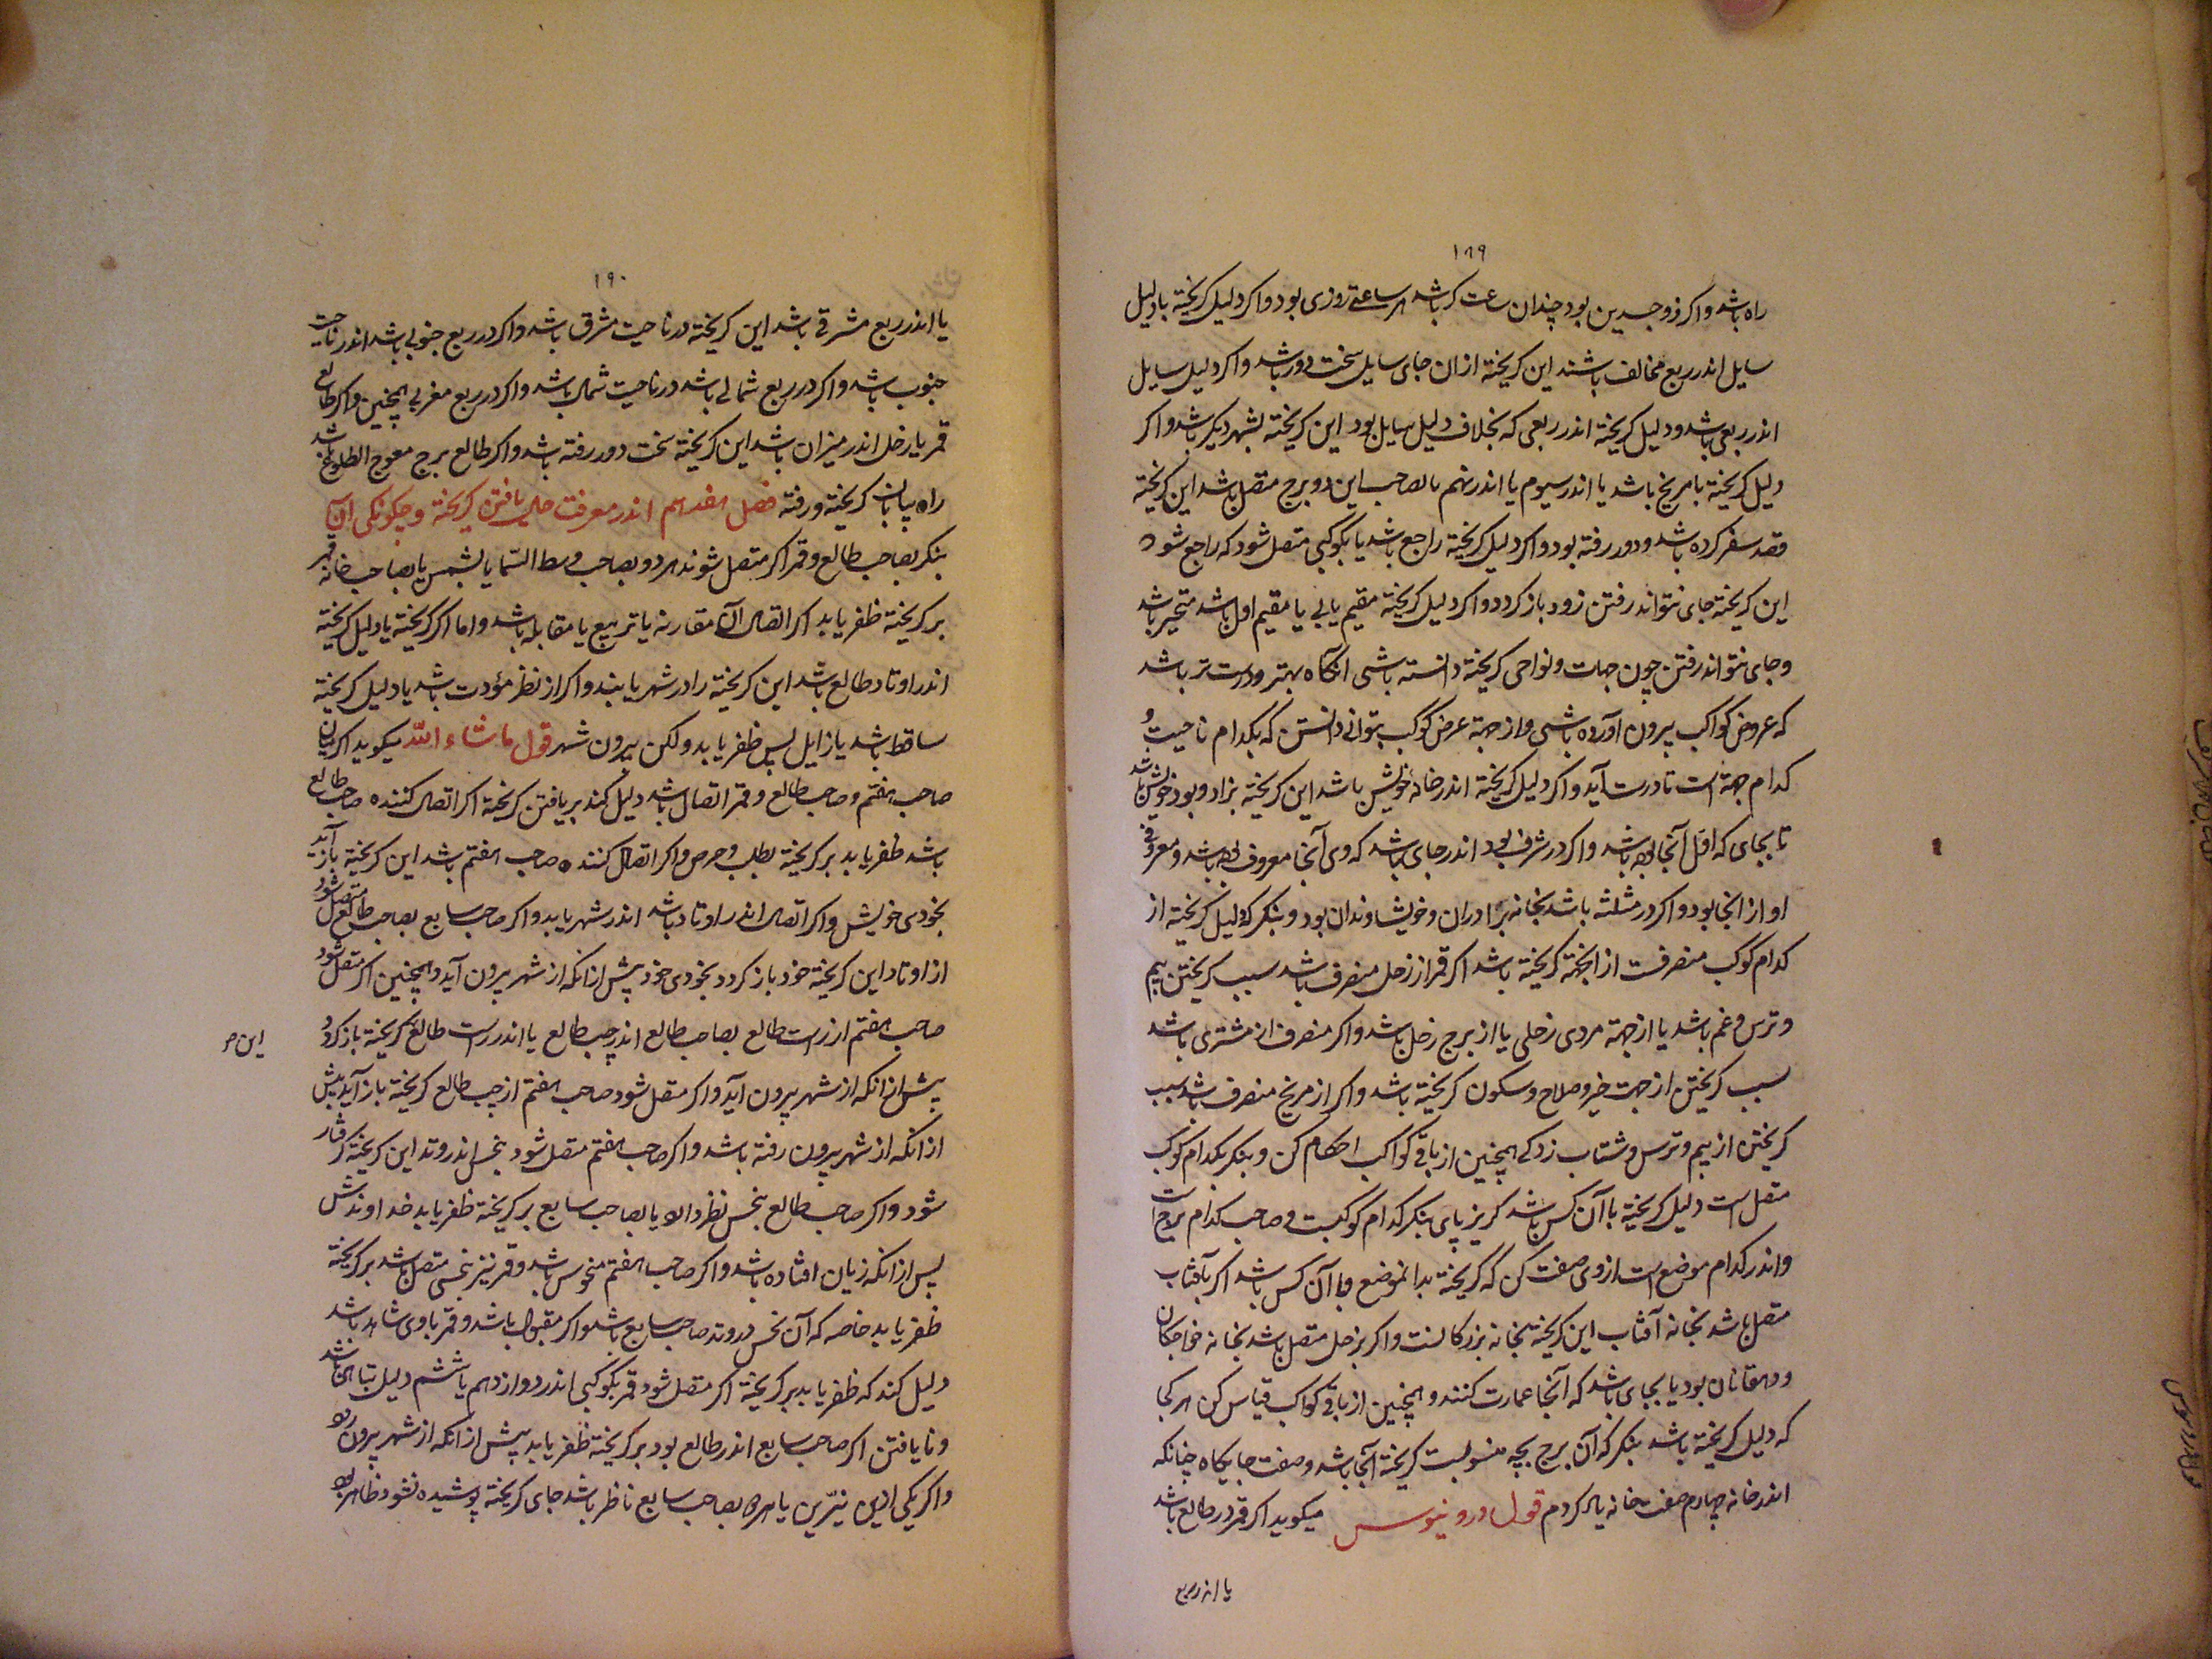 ١٨٩
راه باشد و اکر ذو جسدین بود چندان ساعت که باشد هر ساعتی روزی بود و اکر دلیل کریخته با دلیل
سایل اندر ربع مخالف باشند این کریخته از ان جای سایل سخت دور باشد و اکر دلیل سایل
اندر ربعی باشد و دلیل کریخته اندر ربعی که بخلاف دلیل سایل بود این کریخته بشهر دیکر باشد و اکر
دلیل کریخته با مریخ باشد یا اندر سیوم یا اندر نهم یا بصاحب این دو برج متصل باشد این کریخته
قصد سفر کرده باشد و دور رفته بود و اکر دلیل کریخته راجع باشد یا بکوکبی متصل شود که راجع شود
این کریخته جای نتواند رفتن زود باز کردد و اکر دلیل کریخته مقیم یابی یا مقیم اول باشد متحیر باشد
و جای نتواند رفتن چون جهات و نواحی کریخته دانسته باشی انکاه بهتر و درست تر باشد
که عروض کواکب بیرون آورده باشی و از جهة عرض کوکب بتوانی دانستن که بکدام ناحیت و
کدام جهة است تا درست آید و اکر دلیل کریخته اندر خانه خویش باشد این کریخته بزاد و بود خویش باشد
تا بجای که اول آنجا بوده باشد و اکر در شرف بود اندر جای باشد که وی آنجا معروف بوده باشد و معروفی
او از انجا بود و اکر در مثلثه باشد بخانه برادران و خویشاوندان بود و بنکر که دلیل کریخته از
کدام کوکب منصرفست از انجهة کریخته باشد اکر قمر از زحل منصرف باشد سبب کریختن بیم
و ترس و غم باشد یا از جهة مردی زحلی یا از برج زحل باشد و اکر منصرف از مشتری باشد
سبب کریختن از جهت خیر و صلاح و سکون کریخته باشد و اکر از مریخ منصرف باشد سبب
کریختن از بیم و ترس و شتاب زدکی همچنین از باقی کواکب احکام کن و بنکر بکدام کوکب
متصل است دلیل کریخته با آن کس باشد کریز پای بنکر کدام کوکبست و صاحب کدام برج است
و اندر کدام موضع است از وی صفت کن که کریخته بدانموضع و با آن کس باشد اکر بآفتاب
متصل باشد بخانه آفتاب این کریخته بخانه بزرکانست و اکر بزحل متصل باشد بخانه خواجکان
و دهقانان بود یا بجای باشد که آنجا عمارت کنند و همچنین از باقی کواکب قیاس کن هر کجا
که دلیل کریخته باشد بنکر که آن برج بچه منسوبست کریخته آنجا باشد و صفت جایکاه چنانکه
اندر خانه چهارم صفت خانه یاد کردم قول درونیوس میکوید اکر قمر در طالع باشد
یا اندر ربع
١٩٠
یا اندر ربع مشرقی باشد این کریخته در ناحیت مشرق باشد و اکر در ربع جنوبی باشد اندر ناحیت
جنوب باشد و اکر در ربع شمالی باشد در ناحیت شمال باشد و اکر در ربع مغربی همچنین و اکر طالع
قمر یا زحل اندر میزان باشد این کریخته سخت دور رفته باشد و اکر طالع برج معوج الطلوع باشد
راه بیابان کریخته و رفته فصل هفدهم اندر معرفت حال یافتن کریخته و چکونکی آن
بنکر بصاحب طالع و قمر اکر متصل شوند هر دو بصاحب وسط السّما یا بشمس یا بصاحب خانه قمر
بر کریخته ظفر یابد اکر اتصال آن مقارنه یا تربیع یا مقابله باشد و اما اکر کریخته یا دلیل کریخته
اندر اوتاد طالع باشد این کریخته را در شهر یابند و اکر از نظر مؤدت باشد یا دلیل کریخته
ساقط باشد یا زایل پس ظفر یابد ولکن بیرون شهر قول ما شاء اللّه میکوید اکر میان
صاحب هفتم و صاحب طالع و قمر اتصال باشد دلیل کند بر یافتن کریخته اکر اتصال کننده صاحب طالع
باشد ظفر یابد بر کریخته بطلب و حرص و اکر اتصال کننده صاحب هفتم باشد این کریخته باز آید
بخودی خویش و اکر اتصال اندر اوتاد باشد اندر شهر یابد و اکر صاحب سابع بصاحب طالع متصل شود
از اوتاد این کریخته خود باز کردد بخودی خود پیش از انکه از شهر بیرون آید و همچنین اکر متصل شود
صاحب هفتم از راست طالع بصاحب طالع اندر چپ طالع یا اندر راست طالع کریخته باز کردد
این ص
پیش از انکه از شهر بیرون آید و اکر متصل شود صاحب هفتم از چپ طالع کریخته باز آید پیش
از انکه از شهر بیرون رفته باشد و اکر صاحب هفتم متصل شود بنحس اندر وتد این کریخته کرفتار
شود و اکر صاحب طالع بنحس نظر دارد یا بصاحب سابع بر کریخته ظفر یابد خداوندش
پس از انکه زیان افتاده باشد و اکر صاحب هفتم منحوس باشد و قمر نیز بنحسی متصل باشد بر کریخته
ظفر یابد خاصه که آن نحس در وتد صاحب سابع باشد و اکر مقبول باشد و قمر با وی شاهد باشد
دلیل کند که ظفر یابد بر کریخته اکر متصل شود قمر بکوکبی اندر دوازدهم یا ششم دلیل تباهی باشد
و نا یافتن اکر صاحب سابع اندر طالع بود بر کریخته ظفر یابد پیش از انکه از شهر بیرون رود
و اکر یکی از این نیّرین یا هر دو بصاحب سابع ناظر باشد جای کریخته پوشیده نشود ظاهر بود